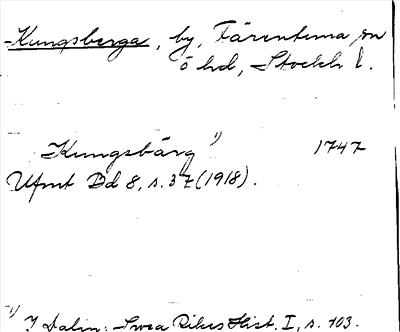 Kungsberga, by, Färentuna sn
ö hd, Stockh l.
Kungsbärg 1) 1747
Ufmt Bd 8, s. 37 (1918).
1) J Dalin: Svea Rikes Hist. I, s. 103.